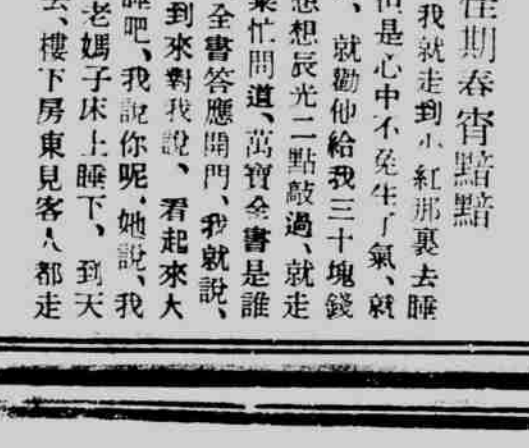 佳期春宵黯黯
我就走到小紅那裏去睡
但是心中不免生了氣、就
、就勸他給我三十塊錢
想想辰光二點敲過、就走
業忙問道、萬寶全書是誰
全書答應開門、我就說、
到來對我說、看起來大
睡吧、我說你呢、她說、我
老媽子床上睡下、到天
去、樓下房東見客人都走